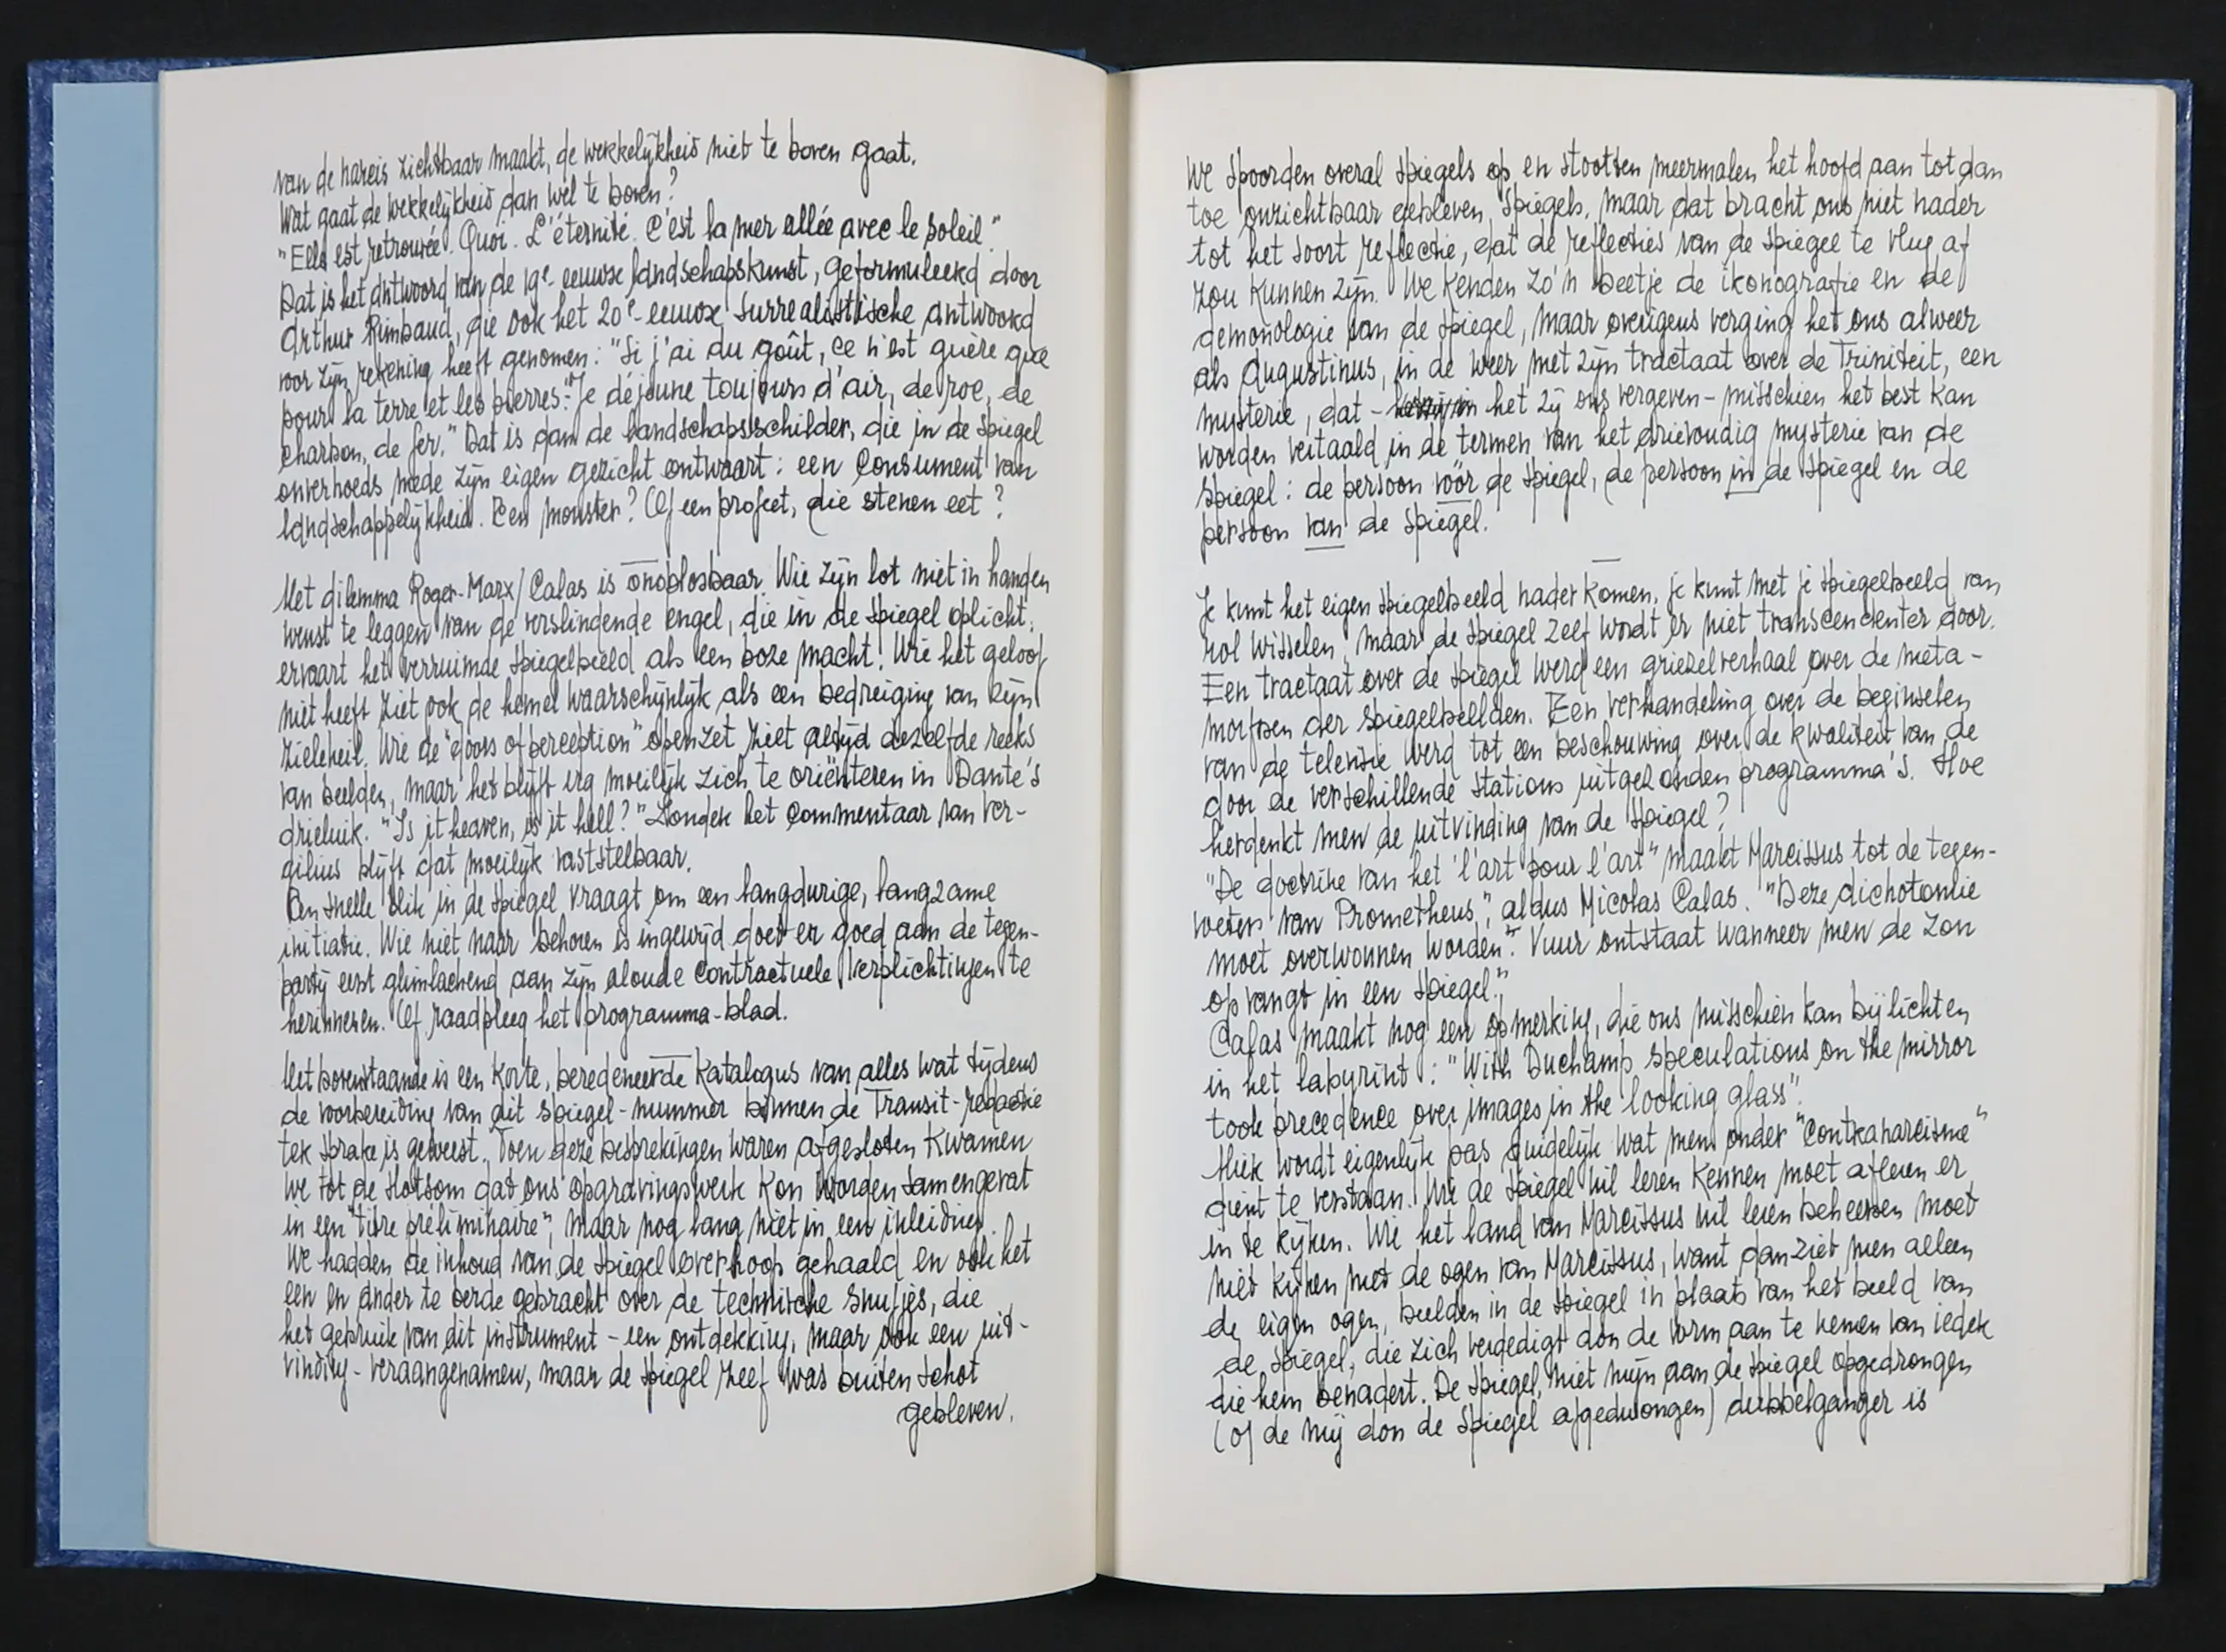 van de narcis zichtbaar maakt, de werkelijkheid niet te boven gaat.
Wat gaat de werkelijkheid dan wel te boven?
"Elle est retrouvée. Quoi. L'éternité. C'est la mer allée avec le soleil."
Dat is het antwoord van de 19e eeuwse landschapskunst, geformuleerd door
Arthur Rimbaud, die ook het 20e-eeuwse surrealistische antwoord
voor zijn rekening heeft genomen: "Si j'ai du goût, ce n'est guère que
pour la terre et les pierres." "Je déjeune toujours d'air, de roc, de
charbon, de fer." Dat is dan de landschapsschilder, die in de spiegel
onverhoeds mede zijn eigen gezicht ontwaart: een consument van
landschappelijkheid. Een monster? Of een profeet, die stenen eet?
Het dilemma Roger-Marx/Calas is onoplosbaar. Wie zijn lot niet in handen
wenst te leggen van de verslindende engel, die in de spiegel oplicht,
ervaart het verruimde spiegelbeeld als een boze macht. Wie het geloof
niet heeft ziet ook de hemel waarschijnlijk als een bedreiging van zijn
zieleheil. Wie de "doors of perception" openzet ziet altijd dezelfde reeks
van beelden, maar het blijft erg moeilijk zich te oriënteren in Dante's
drieluik. "Is it heaven, is it hell?" Zonder het commentaar van Ver-
gilius blijft dat moeilijk vaststelbaar.
Een snelle blik in de spiegel vraagt om een langdurige, langzame
initiatie. Wie niet naar behoren is ingewijd doet er goed aan de tegen-
partij eerst glimlachend aan zijn aloude contractuele verplichtingen te
herinneren. Of raadpleeg het programma-blad.
Het bovenstaande is een korte, beredeneerde katalogus van alles wat tijdens
de voorbereiding van dit spiegel-nummer binnen de Transit-redactie
ter sprake is geweest. Toen deze besprekingen waren afgesloten kwamen
we tot de slotsom dat ons opgravingswerk kon worden samengevat
in een "titre préliminaire", maar nog lang niet in een inleiding.
We hadden de inhoud van de spiegel overhoop gehaald en ook het
een en ander te berde gebracht over de technische snufjes, die
het gebruik van dit instrument - een ontdekking, maar ook een uit-
vinding - veraangenamen, maar de spiegel zelf was buiten schot
gebleven.
We spoorden overal spiegels op en stootten meermalen het hoofd aan tot dan
toe onzichtbaar gebleven spiegels, maar dat bracht ons niet nader
tot het soort reflectie, dat de reflecties van de spiegel te vlug af
zou kunnen zijn. We kenden zo'n beetje de ikonografie en de
demonologie van de spiegel, maar overigens verging het ons alweer
als Augustinus, in de weer met zijn tractaat over de Triniteit, een
mysterie, dat - het zij ons vergeven - misschien het best kan
worden vertaald in de termen van het drievoudig mysterie van de
spiegel: de persoon vóór de spiegel, de persoon in de spiegel en de
persoon van de spiegel.
Je kunt het eigen spiegelbeeld nader komen, je kunt met je spiegelbeeld van
rol wisselen, maar de spiegel zelf wordt er niet transcendenter door.
Een tractaat over de spiegel werd een griezelverhaal over de meta-
morfosen der spiegelbeelden. Een verhandeling over de beginselen
van de televisie werd tot een beschouwing over de kwaliteit van de
door de verschillende stations uitgezonden programma's. Hoe
herdenkt men de uitvinding van de spiegel?
"De doctrine van het 'l'art pour l'art" maakt Narcissus tot de tegen-
voeter van Prometheus", aldus Nicolas Calas. "Deze dichotomie
moet overwonnen worden". Vuur ontstaat wanneer men de zon
opvangt in een spiegel."
Calas maakt nog een opmerking, die ons misschien kan bijlichten
in het labyrint: "With Duchamp speculations on the mirror
took precedence over images in the looking glass".
Hier wordt eigenlijk pas duidelijk wat men onder "contranarcisme"
dient te verstaan. Wie de spiegel wil leren kennen moet afleren er
in te kijken. Wie het land van Narcissus wil leren beheersen moet
niet kijken met de ogen van Narcissus, want dan ziet men alleen
de eigen ogen, beelden in de spiegel in plaats van het beeld van
de spiegel, die zich verdedigt door de vorm aan te nemen van ieder
die hem benadert. De spiegel, niet mijn aan de spiegel opgedrongen
(of de mij door de spiegel afgedwongen) dubbelganger is